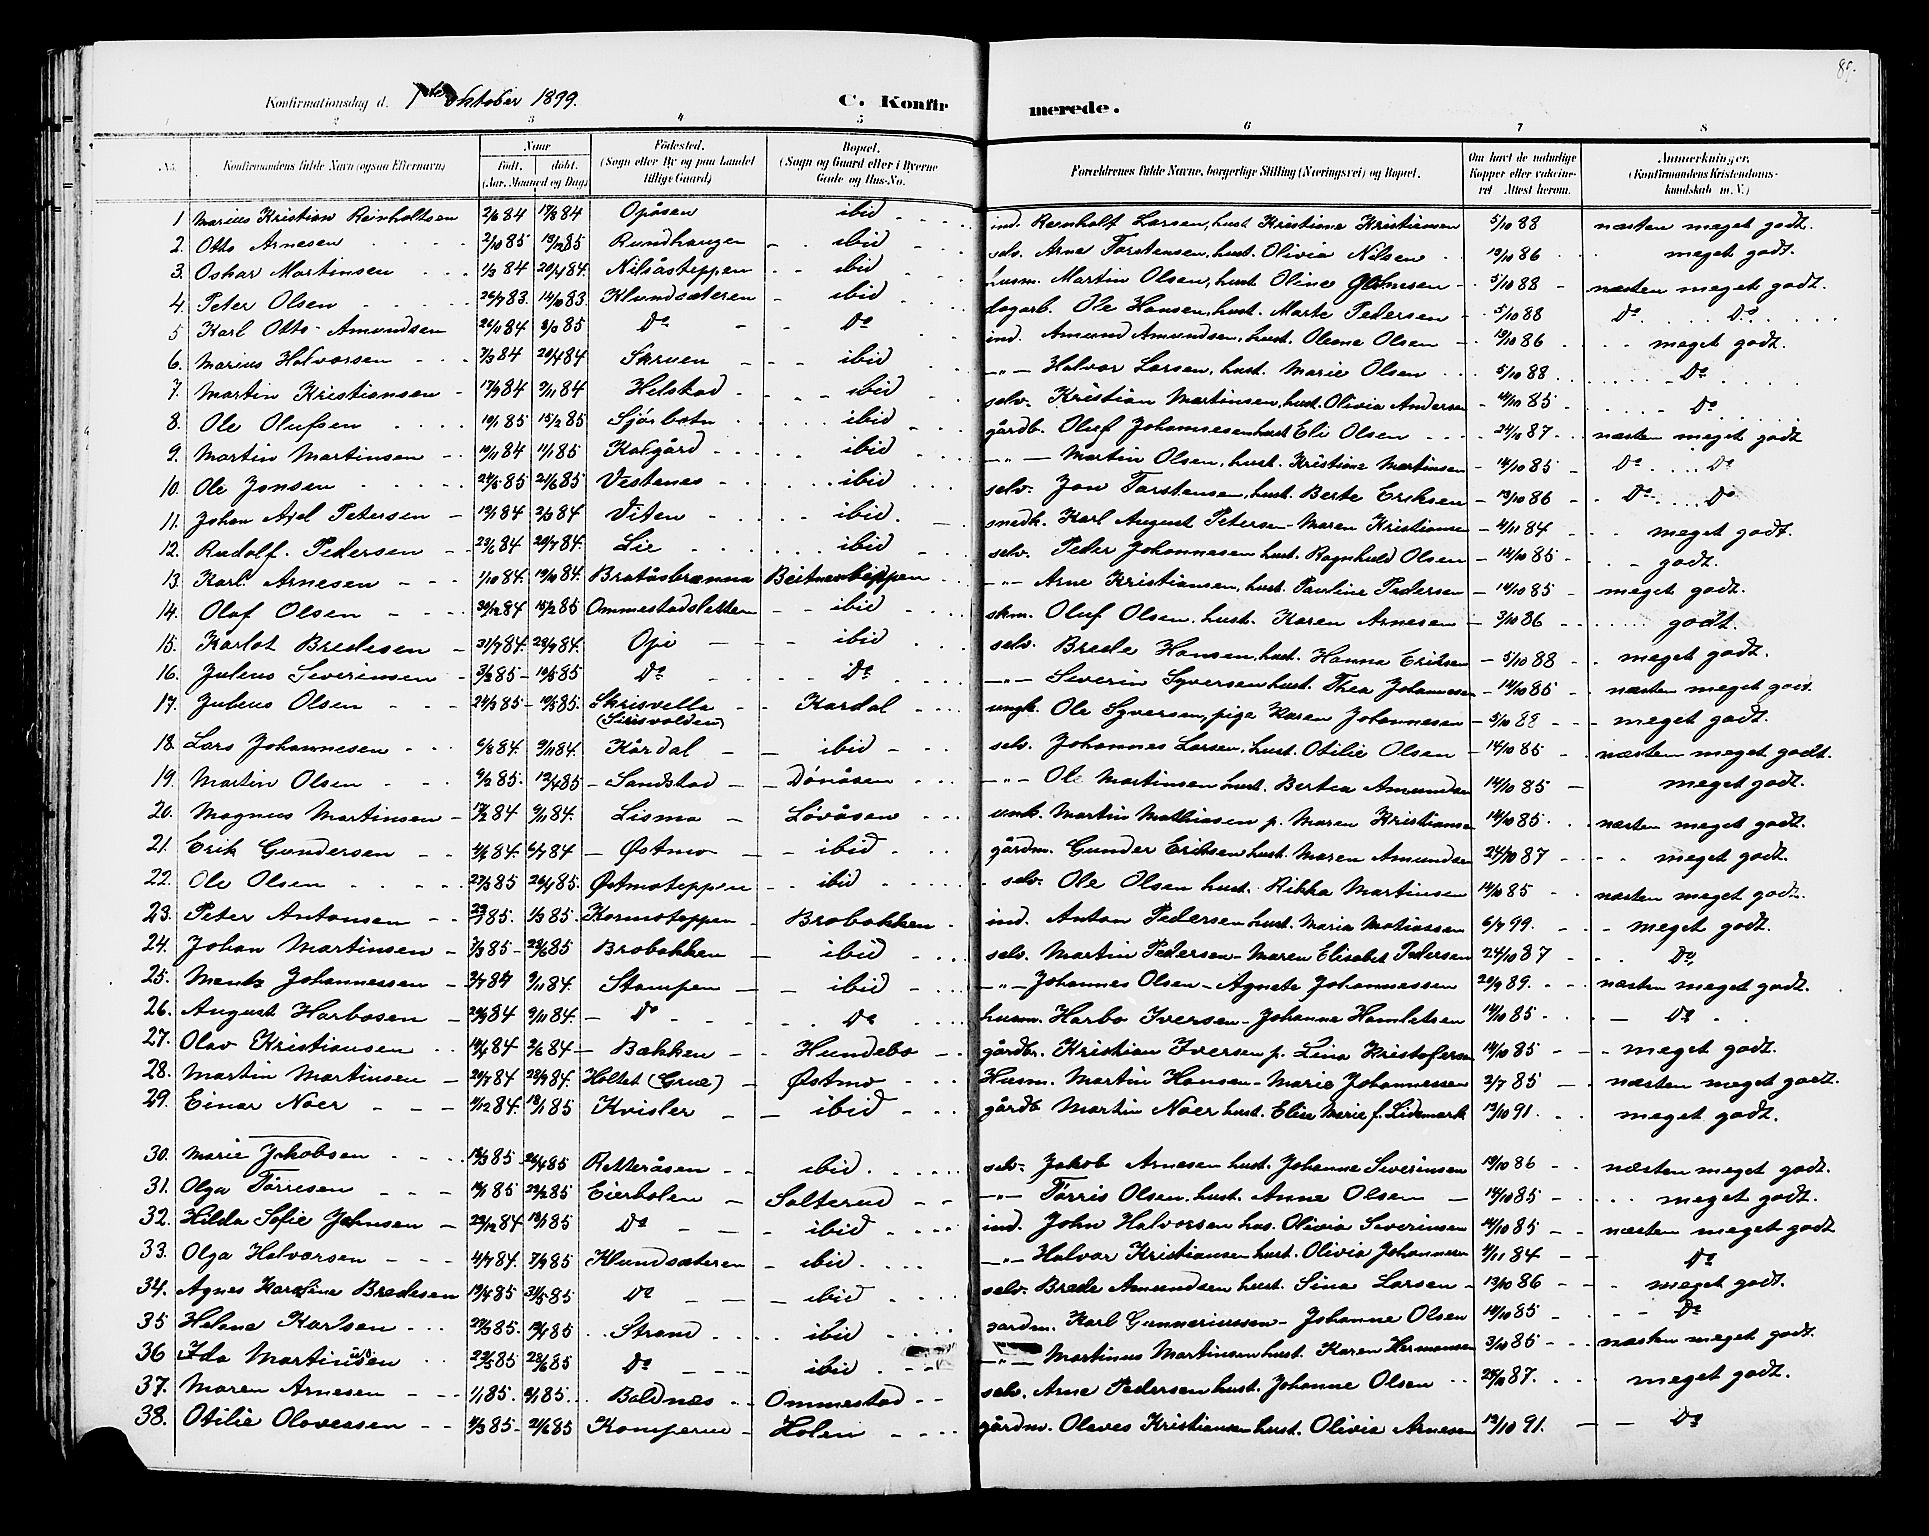 89.
Konfirmationsdag d. 1ste Oktober 1899. C. Konfirmerede.
1 2 3 4 5 6 7 8
No. Konfirmandens fulde Navn (ogsaa Efternavn) Naar født. døbt. (Aar, Maaned og Dag) Fødested. (Sogn eller By og paa Landet tillige Gaard) Bopæl. (Sogn og Gaard eller i Byerne Gade og Hus-No. Forældrenes fulde Navne, borgerlige Stilling (Næringsvei) og Bopæl. Om havt de naturlige Kopper eller vakcineret. Attest herom. Anmærkninger. (Konfirmandens Kristendomskundskab m. V.)
1 Marius Kristian Reinholtsen 2/8 84 17/8 84 Opåsen ibid ind. Reinholt Larsen, hust Kristiane Kristiansen 5/10 88 næsten meget godt.
2. Otto Arnesen 2/10 85 13/12 85 Rundhaugen ibid selv. Arne Torstensen, hust. Olivia Nilsen 13/10 86 meget godt.
3. Oskar Martinsen 1/3 84 20/4 84. Nilsåsteppen ibid husm. Martin Olsen, hust. Oline 5/10 88 næsten meget godt.
4. Peter Olsen 26/7 83. 14/10 83. Klundsæteren ibid dagarb. Ole Hansen, hust. Marte Pedersen 5/10 88 Do Do
5 Karl Otto Amundsen 26/11 84 8/3 85 Do Do ind. Amund Amundsen, hust. Oleme Olsen 13/10 86 meget godt.
6. Marius Halvorsen 7/3 84 20/4 84 Skruen ibid -"- Halvor Larsen, hust. Marie Olsen 5/10 88 Do
7. Martin Kristiansen 17/9 84 9/11 84 Helstad ibid selv. Kristian Martinsen, hust. Olivia Andersen 14/10 85 Do
8. Ole Olufsen 10/1 85 15/2 85 Sjørbotn ibid gårdb. Oluf Johannesen hust Eli Olsen 24/10 87 næsten meget godt
9. Martin Martinsen 10/11 84 11/1 85 Kolgård ibid -"- Martin Olsen, hust. Kristiane Martinsen 14/10 85 Do Do
10. Ole Jonsen 24/5 85 21/6 85 Vestenes ibid selv. Jon Torstensen, hust. Berte Eriksen 13/10 86 Do Do
11. Johan Axel Petersen 19/1 84 2/3 84 Viten ibid. snedk. Karl August Petersen - Maren Kristiansen 4/11 84 meget godt.
12. Rudolf Pedersen 23/6 84 20/7 84. Lie ibid selv. Peder Johannesen hust. Ragnhild Olsen 14/10 85 godt.
13. Karl Arnesen 1/10 84. 19/10 84. Bratåsbrænna Beitnesteppen -"- Arne Kristiansen, hust. Pauline Pedersen 14/10 85 meget godt.
14. Olaf Olsen 30/12 84 15/2 85 Ommestadsletten ibid skm. Oluf Olsen, hust. Karen Arnesen 3/10 86 godt.
15. Karlot Bredesen 21/7 84. 28/9 84. Opi ibid selv. Brede Hansen, hust. Hanna Eriksen 5/10 88 meget godt.
16. Julius Severinsen 3/3 85 10/5 85 Do Do -"- Severin Syversen hust. Thea Johannesen 14/10 85 næsten meget godt.
17. Julius Olsen 24/3 85 10/5 85. Skrisvella (Sirisvolden) Kardal ungk. Ole Syversen, pige Karen Johannesen 5/10 88 meget godt.
18. Lars Johannesen 6/8 84. 9/11 84. Kårdal ibid selv. Johannes Larsen, hust. Otilie Olsen 14/10 85 næsten meget godt.
19. Martin Olsen 9/3 85. 12/4 85 Sandstad Dønåsen -"- Ole Martinsen hust. Bertea Amundsen 14/10 85 meget godt.
20. Magnus Martinsen 17/2 84 9/11 84. Lisma Løvåsen unk. Martin Mathiasen p. Maren Kristiansen 14/10 85 næsten meget godt.
21. Erik Gundersen 4/6 84. 6/7 84 Østmo ibid gårdm. Gunder Eriksen hust. Maren Amundsen 24/10 87 meget godt.
22. Ole Olsen 27/3 85 26/4 85. Østmoteppen ibid selv. Ole Olsen hust. Rikka Martinsen 14/10 85 næsten meget godt.
23. Peter Antonsen 23/1 85. 1/3 85. Kormoteppen Brobakken ind. Anton Pedersen hust. Maria Matiassen 6/7 99. meget godt.
24. Johan Martinsen 3/3 85 28/6 85 Brobakken ibid selv. Martin Pedersen - Maren Elisabet Pedersen 24/10 87 Do
25. Mentz Johannessen 3/7 84 9/11 84. Stampen ibid -"- Johannes Olsen - Agnete Johannessen 29/9 89. næsten meget godt.
26. August Harbosen 20/9 84 9/11 84. Do Do husm. Harbo Iversen - Johanne Hamletsen 14/10 85 Do
27. Olav Kristiansen 14/4 84 2/6 84 Bakken Hundebo gårdb. Kristian Iversen p. Lina Kristofersen 14/10 85 meget godt.
28. Martin Martinsen 20/7 84 28/9 84. Holtet (Grue) Østmo Husm. Martin Hansen - Marie Johannessen 2/7 85 næsten meget godt.
29. Einar Noer 11/12 84. 18/1 85 Kvisler ibid gårdb. Martin Noer hust. Elise Marie f. Lidemark 13/10 91. meget godt.
30. Marie Jakobsen 13/3 85 26/4 85 Retteråsen ibid. selv. Jakob Arnesen hust. Johanne Severinsen 13/10 86 næsten meget godt.
31. Olga Tørresen 14/1 85 22/2 85 Eierholen Solterud -"- Tørris Olsen, hust. Anne Olsen 14/10 85 meget godt.
32. Hilda Sofie Johnsen 23/12 84 18/1 85 Do ibid ind. John Halvorsen hus. Olivia Severinsen 14/10 85 næsten meget godt
33. Olga Halvorsen 4/7 84. 7/9 85 Klundsæteren ibid. -"- Halvor Kristiansen hust. Olivia Johannesen 4/11 84 Do
34. Agnes Karoline Bredesen 19/4 85 31/5 85 Do ibid selv. Brede Amundsen hust. Sina Larsen 13/10 86 meget godt.
35 Helene Karlsen 27/3 85. 12/4 85 Strand ibid gardm. Karl Gunneriussen - Johanne Olsen 14/10 85 Do
36 Ida Martinusen 22/5 85 28/6 85 Do ibid -"- Martinus Martinsen hust. Karen Hermansen 3/10 85 næsten meget godt.
37. Maren Arnesen 1/1 85. 8/1 85 Baldnæs Ommestad selv. Arne Pedersen hust. Johanne Olsen 24/10 87. meget godt.
38. Otilie Olavessen 4/3 85 21/6 85 Komperud Holen gårdm. Olaves Kristiansen hust. Olivia Arnesen 13/10 91. Do